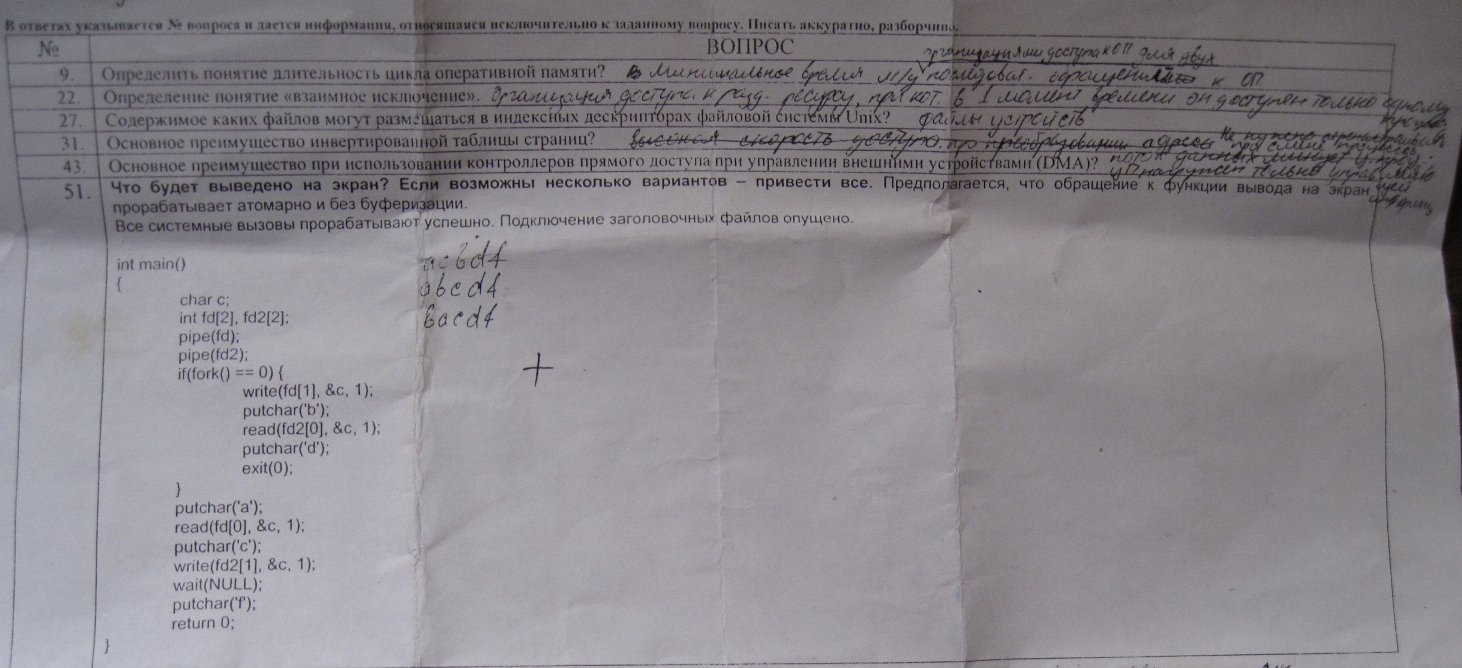 В ответах указывается № вопроса и дается информация, относящаяся исключительно к заданному вопросу. Писать аккуратно, разборчиво.
№ ВОПРОС
организациями доступа к ОП для двух
9. Определить понятие длительность цикла оперативной памяти? минимальное время м/у последоват. обращениями к ОП
22. Определение понятие «взаимное исключение». Организация доступа к разд. ресурсу, при кот. в 1 момент времени он доступен только одному
27. Содержимое каких файлов могут размещаться в индексных дескрипторах файловой системы Unix? файлы устройств
31. Основное преимущество инвертированной таблицы страниц? высокая скорость доступа при преобразовании адреса Не нужно при смене
43. Основное преимущество при использовании контроллеров прямого доступа при управлении внешними устройствами (DMA)? поток данных минует ЦП нагружен только
51. Что будет выведено на экран? Если возможны несколько вариантов – привести все. Предполагается, что обращение к функции вывода на экран
прорабатывает атомарно и без буферизации.
Все системные вызовы прорабатывают успешно. Подключение заголовочных файлов опущено.
int main() acbdf
{ abcdf
char c;
int fd[2], fd2[2]; bacdf
pipe(fd);
pipe(fd2);
if(fork() == 0) { +
write(fd[1], &c, 1);
putchar('b');
read(fd2[0], &c, 1);
putchar('d');
exit(0);
}
putchar('a');
read(fd[0], &c, 1);
putchar('c');
write(fd2[1], &c, 1);
wait(NULL);
putchar('f');
return 0;
}